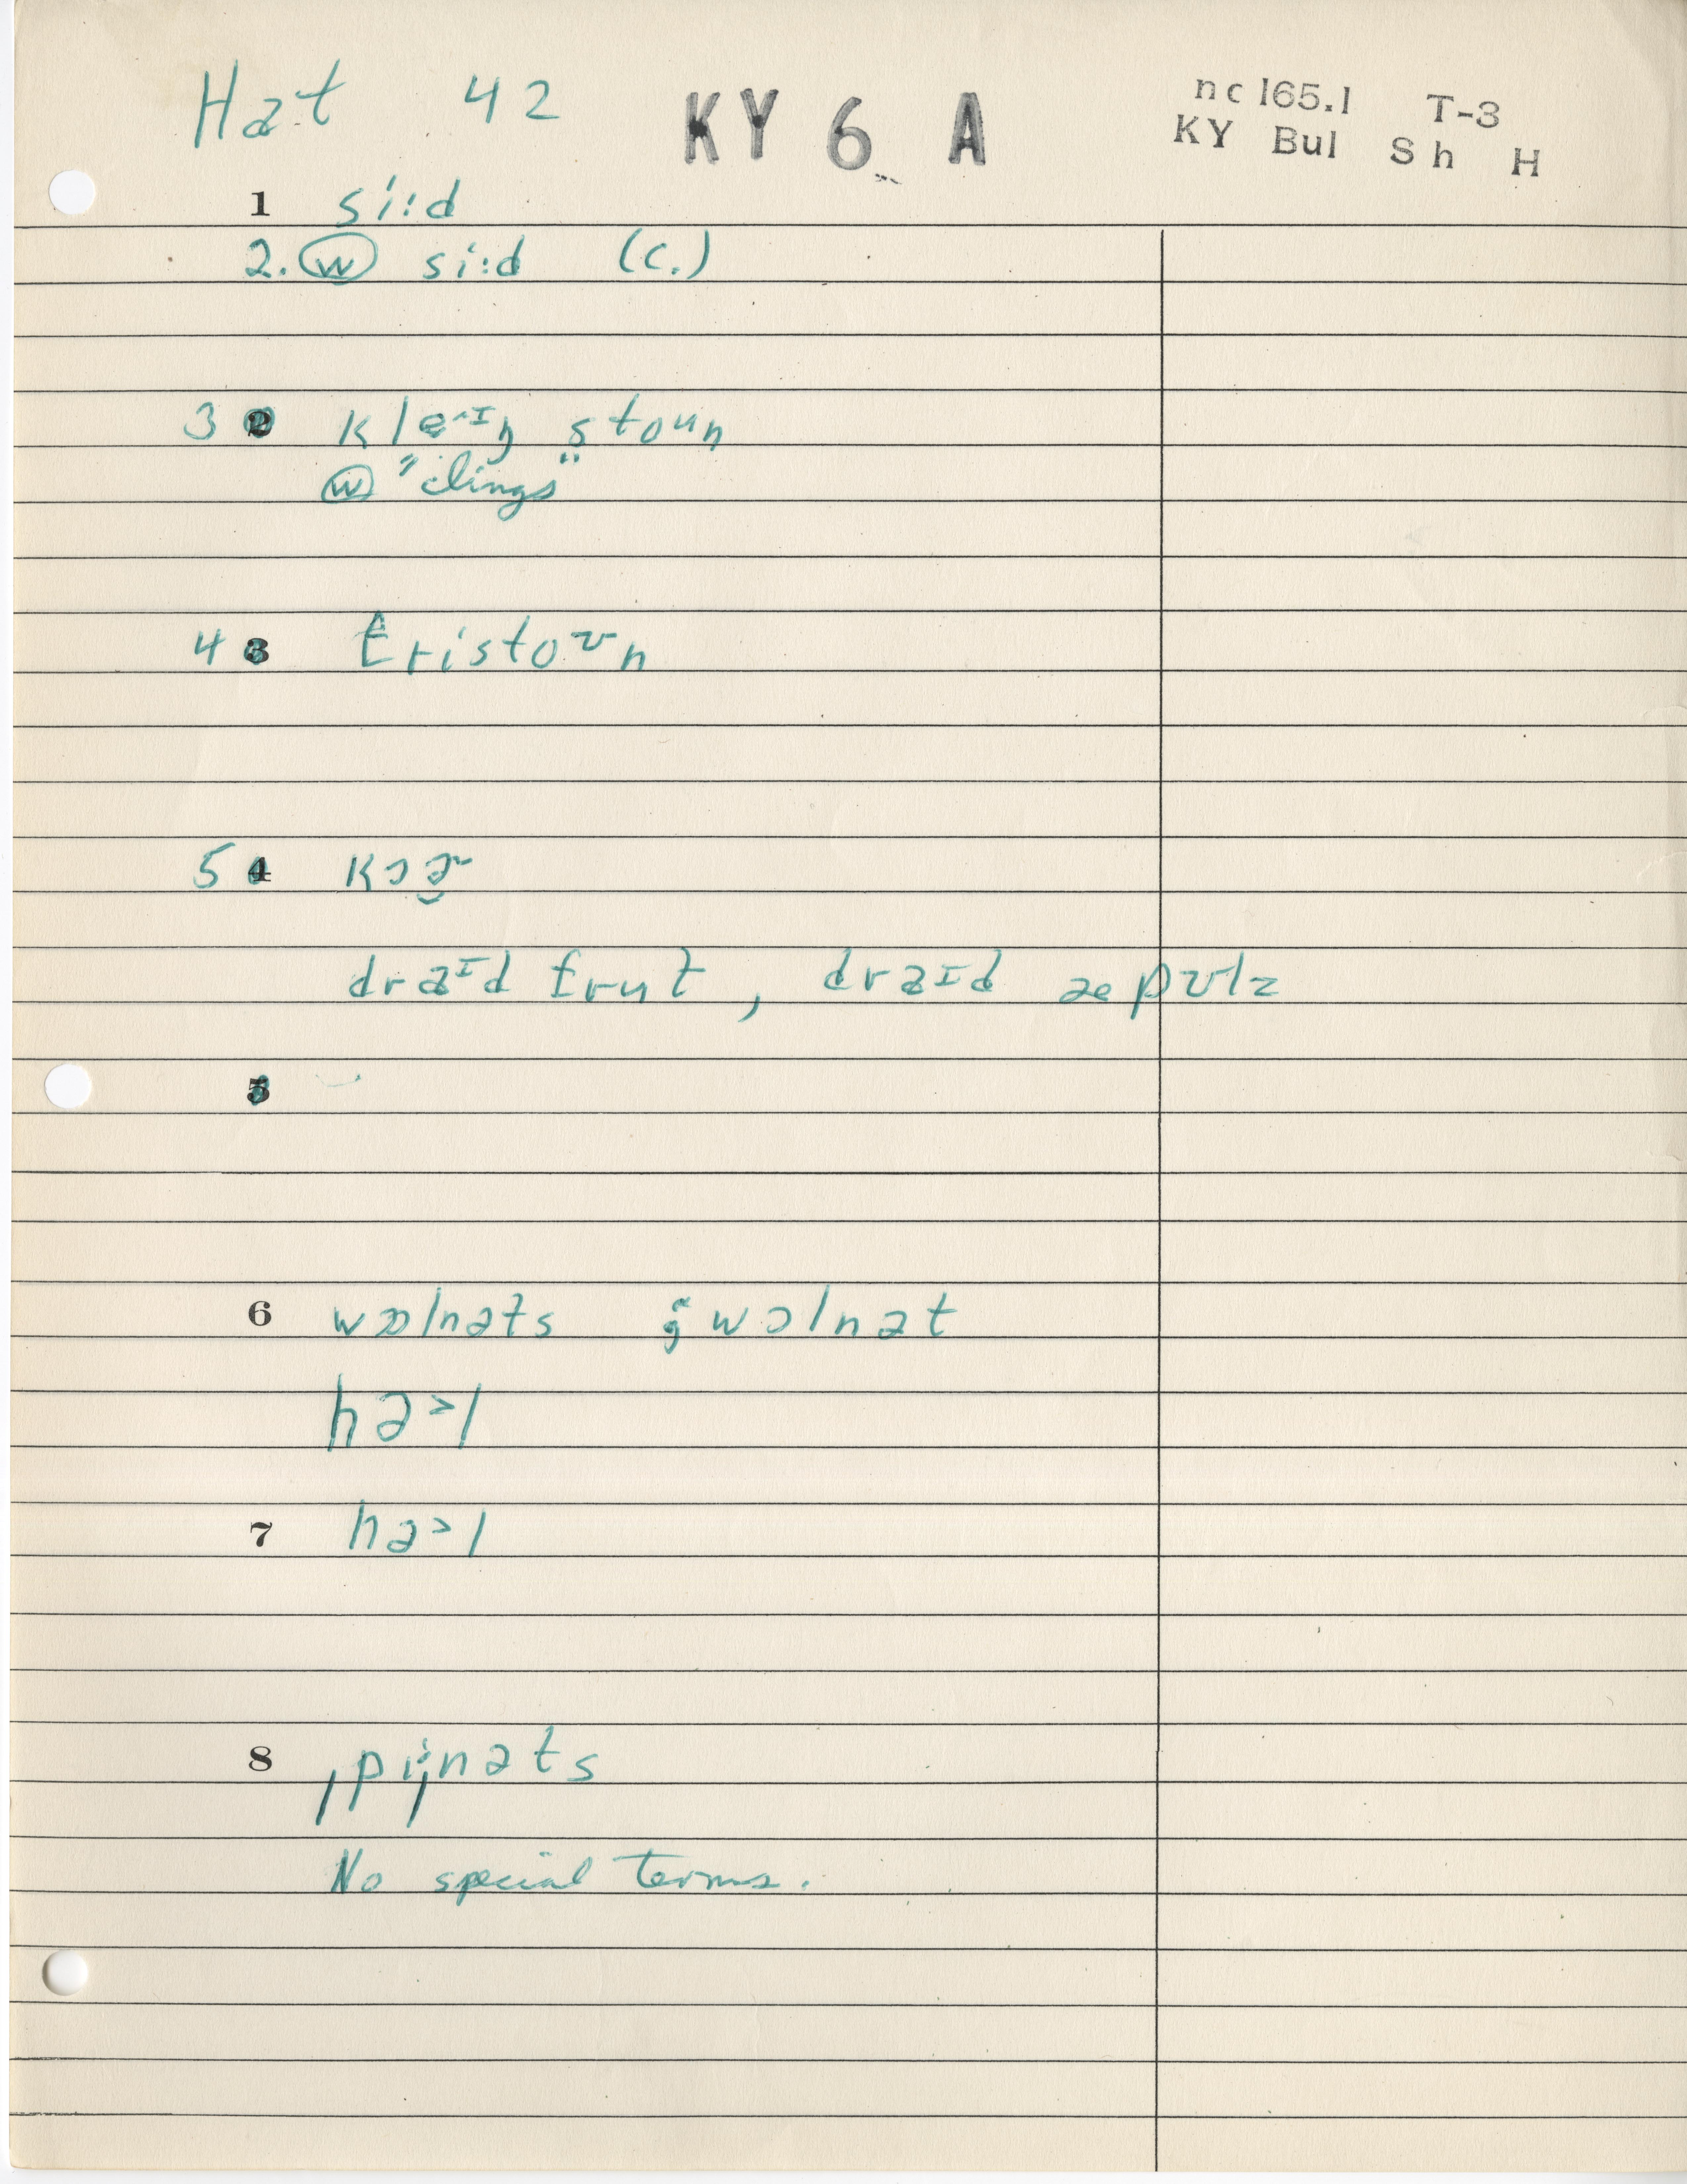 Hat 42 KY 6 A nc 165.1 T-3
KY Bul Sh H
1 si:d
2. w si:d (c.)
3 2 stoun
w "clings"
4 3
5 4
draɪd frut, draɪd
5
6 wɔlnəts ; wɔlnət
hə>l
7 hə>l
8
No special terms.